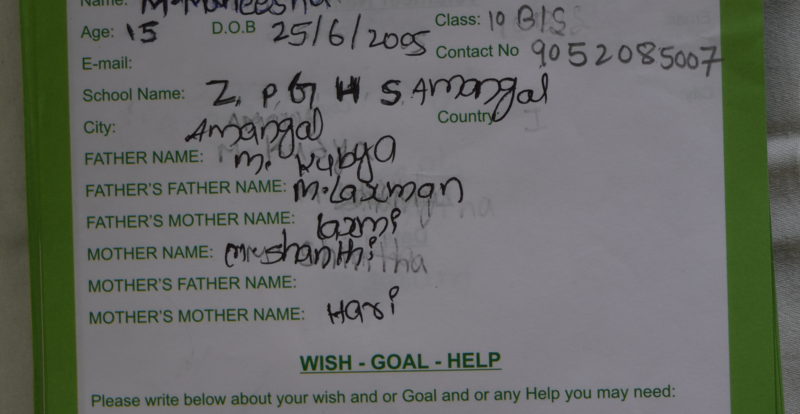 Name: M. Maneesha
Age: 15 D.O.B 25/6/2005 Class: 10 B/S
E-mail: Contact No 9052085007
School Name: Z. P. G H S Amangal
City: Amangal Country
FATHER NAME: M.
FATHER'S FATHER NAME: M. Laxman
FATHER'S MOTHER NAME: laxmi
MOTHER NAME: shanthi
MOTHER'S FATHER NAME:
MOTHER'S MOTHER NAME: Hari
WISH - GOAL - HELP
Please write below about your wish and or Goal and or any Help you may need: